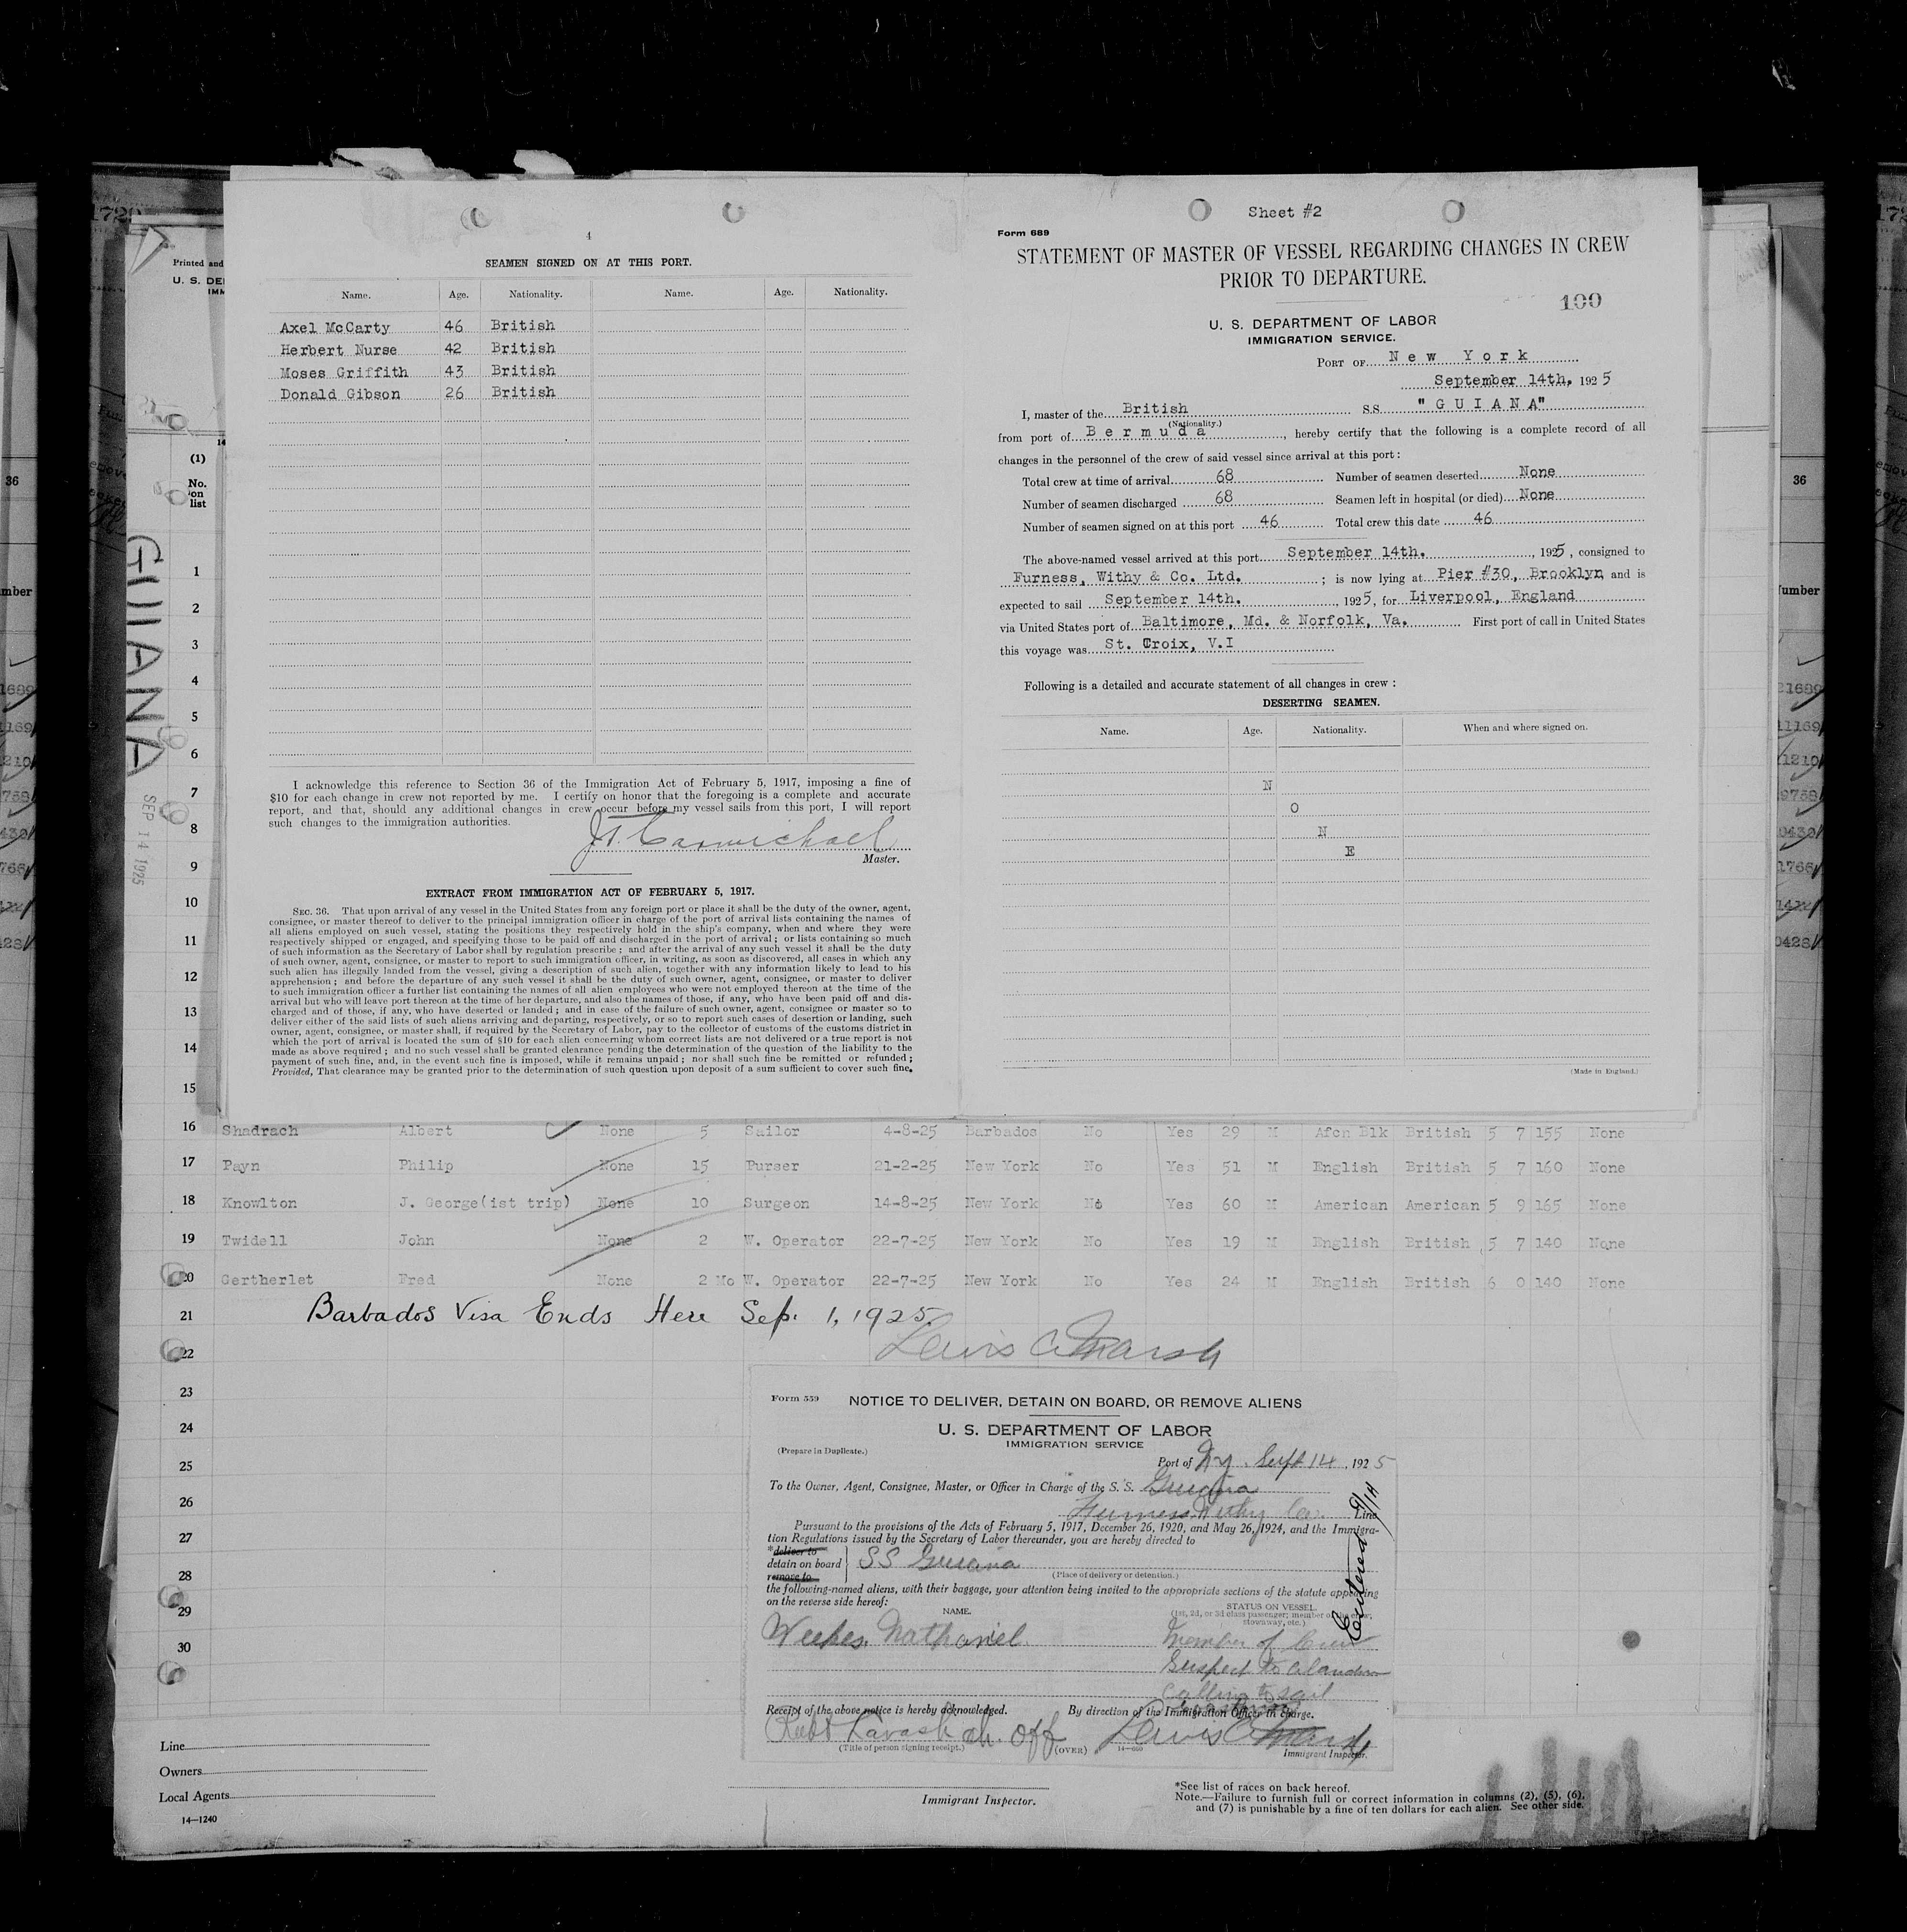 4
SEAMEN SIGNED ON AT THIS PORT.
Name. Age. Nationality. Name. Age. Nationality.
Axel McCarty 46 British
Herbert Nurse 42 British
Moses Griffith 43 British
Donald Gibson 26 British
I acknowledge this reference to Section 36 of the Immigration Act of February 5, 1917, imposing a fine of
$10 for each change in crew not reported by me. I certify on honor that the foregoing is a complete and accurate
report, and that, should any additional changes in crew occur before my vessel sails from this port, I will report
such changes to the immigration authorities.
Carmichael
Master.
EXTRACT FROM IMMIGRATION ACT OF FEBRUARY 5, 1917.
SEC. 36. That upon arrival of any vessel in the United States from any foreign port or place it shall be the duty of the owner, agent,
consignee, or master thereof to deliver to the principal immigration officer in charge of the port of arrival lists containing the names of
all aliens employed on such vessel, stating the positions they respectively hold in the ship's company, when and where they were
respectively shipped or engaged, and specifying those to be paid off and discharged in the port of arrival; or lists containing so much
of such information as the Secretary of Labor shall by regulation prescribe; and after the arrival of any such vessel it shall be the duty
of such owner, agent, consignee, or master to report to such immigration officer, in writing, as soon as discovered, all cases in which any
such alien has illegally landed from the vessel, giving a description of such alien, together with any information likely to lead to his
apprehension; and before the departure of any such vessel it shall be the duty of such owner, agent, consignee, or master to deliver
to such immigration officer a further list containing the names of all alien employees who were not employed thereon at the time of the
arrival but who will leave port thereon at the time of her departure, and also the names of those, if any, who have been paid off and dis-
charged and of those, if any, who have deserted or landed; and in case of the failure of such owner, agent, consignee or master so to
deliver either of the said lists of such aliens arriving and departing, respectively, or so to report such cases of desertion or landing, such
owner, agent, consignee, or master shall, if required by the Secretary of Labor, pay to the collector of customs of the customs district in
which the port of arrival is located the sum of $10 for each alien concerning whom correct lists are not delivered or a true report is not
made as above required; and no such vessel shall be granted clearance pending the determination of the question of the liability to the
payment of such fine, and, in the event such fine is imposed, while it remains unpaid; nor shall such fine be remitted or refunded;
Provided, That clearance may be granted prior to the determination of such question upon deposit of a sum sufficient to cover such fine.
Sheet #2
Form 689
STATEMENT OF MASTER OF VESSEL REGARDING CHANGES IN CREW
PRIOR TO DEPARTURE.
100
U. S. DEPARTMENT OF LABOR
IMMIGRATION SERVICE.
PORT OF New York
September 14th, 1925
I, master of the British SS. "GUIANA"
(Nationality.)
from port of Bermuda, hereby certify that the following is a complete record of all
changes in the personnel of the crew of said vessel since arrival at this port:
Total crew at time of arrival 68 Number of seamen deserted None
Number of seamen discharged 68 Seamen left in hospital (or died) None
Number of seamen signed on at this port 46 Total crew this date 46
The above-named vessel arrived at this port September 14th., 1925, consigned to
Furness, Withy & Co. Ltd. ; is now lying at Pier #30, Brooklyn and is
expected to sail September 14th., 1925, for Liverpool, England
via United States port of Baltimore, Md. & Norfolk, Va. First port of call in United States
this voyage was St. Croix, V.I
Following is a detailed and accurate statement of all changes in crew:
DESERTING SEAMEN.
Name. Age. Nationality. When and where signed on.
N
O
N
E
(Made in England.)
Printed and
U. S. DE
IMM
(1)
No.
on
list
GUIANA
SEP 14 1925
36
mber
36
umber
1
2
3
4
5
6
7
8
9
10
11
12
13
14
15
16 Shadrach Albert None 5 Sailor 4-8-25 Barbados No Yes 29 M Afcn Blk British 5 7 155 None
17 Payn Philip None 15 Purser 21-2-25 New York No Yes 51 M English British 5 7 160 None
18 Knowlton J. George(ist trip) None 10 Surgeon 14-8-25 New York No Yes 60 M American American 5 9 165 None
19 Twidell John None 2 W. Operator 22-7-25 New York No Yes 19 M English British 5 7 140 None
20 Gertherlet Fred None 2 Mo W. Operator 22-7-25 New York No Yes 24 M English British 6 0 140 None
21 Barbados Visa Ends Here Sep. 1, 1925.
22 Lewis C Marsh
23
24
25
26
27
28
29
30
Form 559
NOTICE TO DELIVER, DETAIN ON BOARD, OR REMOVE ALIENS
U. S. DEPARTMENT OF LABOR
IMMIGRATION SERVICE
(Prepare in Duplicate.)
Port of NY. Sept 14, 1925
To the Owner, Agent, Consignee, Master, or Officer in Charge of the S. S. Guiana
Furness Withy Co. Line
Pursuant to the provisions of the Acts of February 5, 1917, December 26, 1920, and May 26, 1924, and the Immigra-
tion Regulations issued by the Secretary of Labor thereunder, you are hereby directed to
*deliver to
detain on board SS Guiana
remove to
(Place of delivery or detention.)
the following-named aliens, with their baggage, your attention being invited to the appropriate sections of the statute appearing
on the reverse side hereof:
NAME.
STATUS ON VESSEL.
(1st, 2d, or 3d class passenger; member of the crew; stowaway, etc.)
Weekes, Nathaniel
member of Crew
Suspect to abandon
calling to sail
Entered 9/14
Receipt of the above notice is hereby acknowledged.
By direction of the Immigration Officer in charge.
Robt Ch. Off
(Title of person signing receipt.)
(OVER)
Lewis C Marsh
Immigrant Inspector.
Line
Owners
Local Agents
14—1240
Immigrant Inspector.
*See list of races on back hereof.
Note.—Failure to furnish full or correct information in columns (2), (5), (6),
and (7) is punishable by a fine of ten dollars for each alien. See other side.